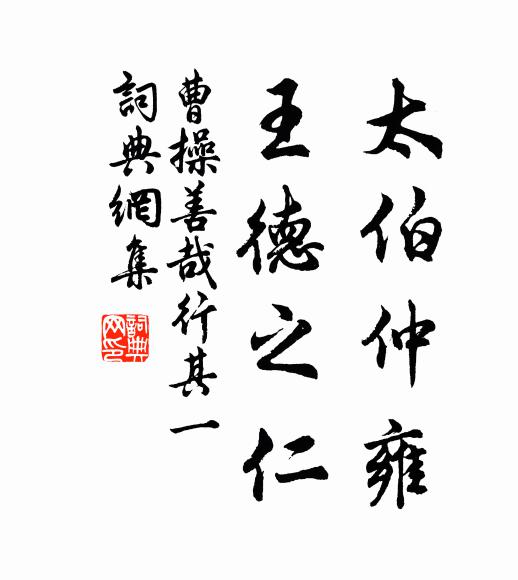 太伯仲雍
王德之仁
曹操善哉行其一
詞典網集
詞典網印